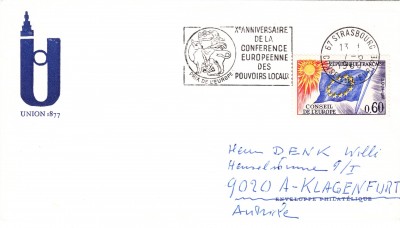 Xe ANNIVERSAIRE
DE LA
CONFERENCE
EUROPEENNE
DES
POUVOIRS LOCAUX
PRIX DE L'EUROPE
67 STRASBOURG
REPUBLIQUE FRANCAISE
CONSEIL
DE L'EUROPE
0,60
UNION 1877
Herrn DENK Willi
9020 A-KLAGENFURT
ENVELOPPE PHILATÉLIQUE
Autriche